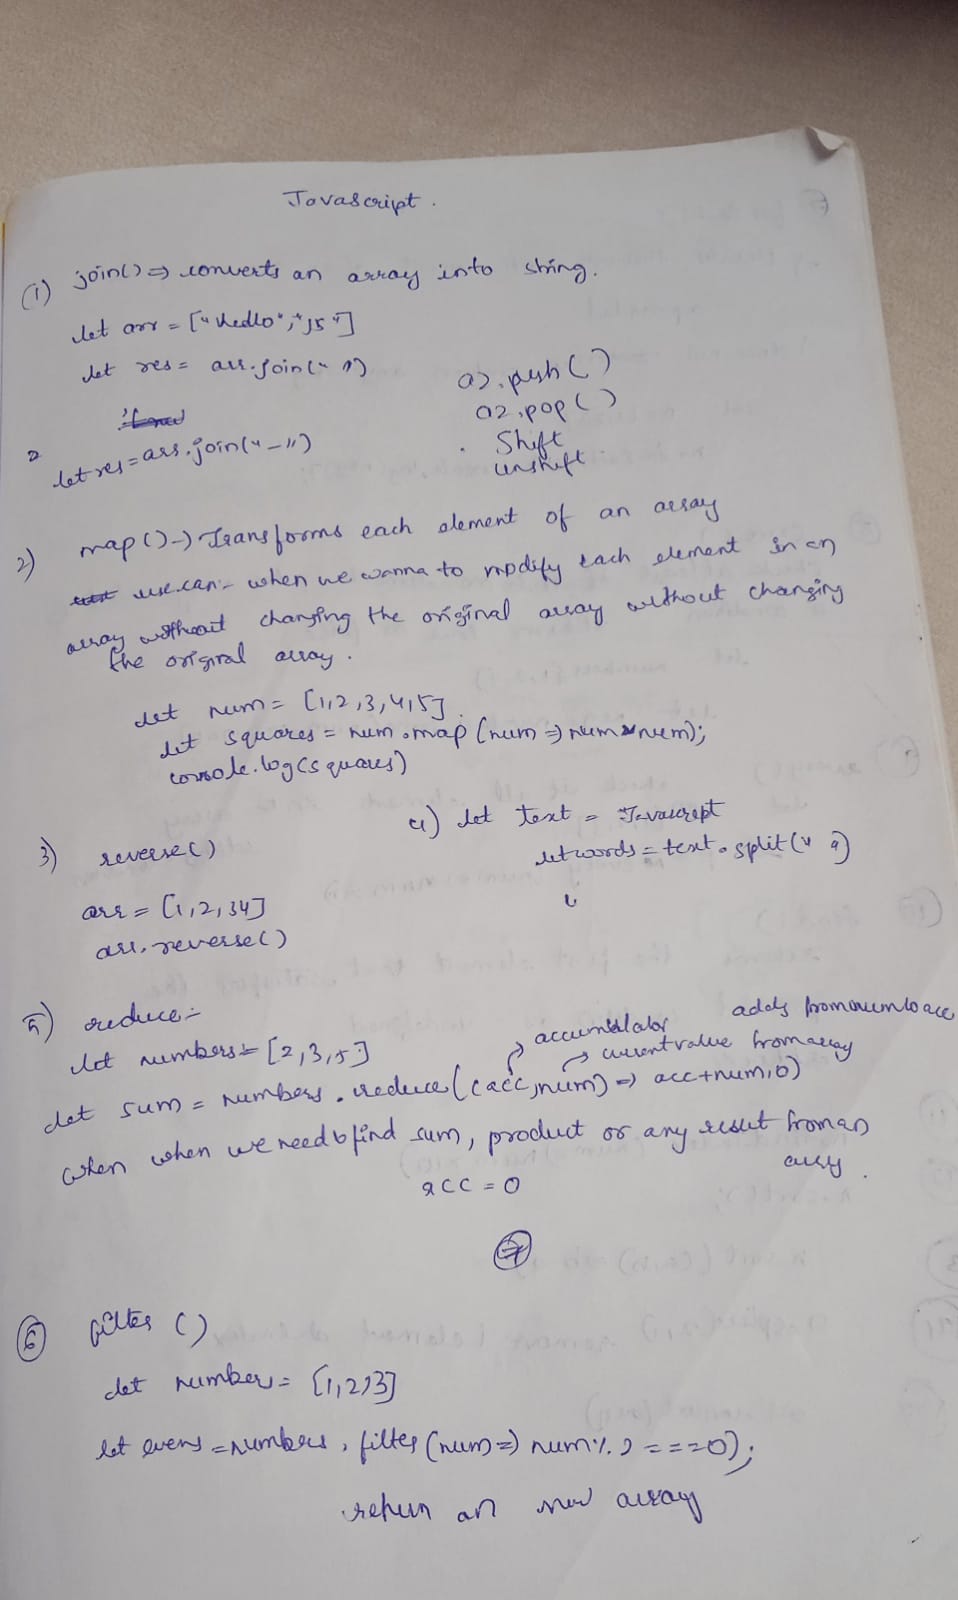 Javascript.
(1) join() => converts an array into string.
let arr = ["hello", "js"]
let res = arr.join(" ")
let res = arr.join("-")
a2.push()
a2.pop()
Shift
unshift
2) map() -> Transforms each element of an array
use can:- when we wanna to modify each element in an
array without changing the original array without changing
the original array.
let num = [1,2,3,4,5]
let squares = num.map(num => num * num);
console.log(squares)
3) reverse()
arr = [1,2,34]
arr.reverse()
4) let text = "Javascript
let words = text.split(" ")
5) reduce:-
accumulator
adds from num to acc
current value from array
let numbers = [2,3,5]
let sum = numbers.reduce((acc,num) => acc+num,0)
when when we need to find sum, product or any result from an
array.
acc = 0
7
6 filter ()
let numbers = [1,2,3]
let evens = numbers.filter(num => num % 2 === 0);
return an new array